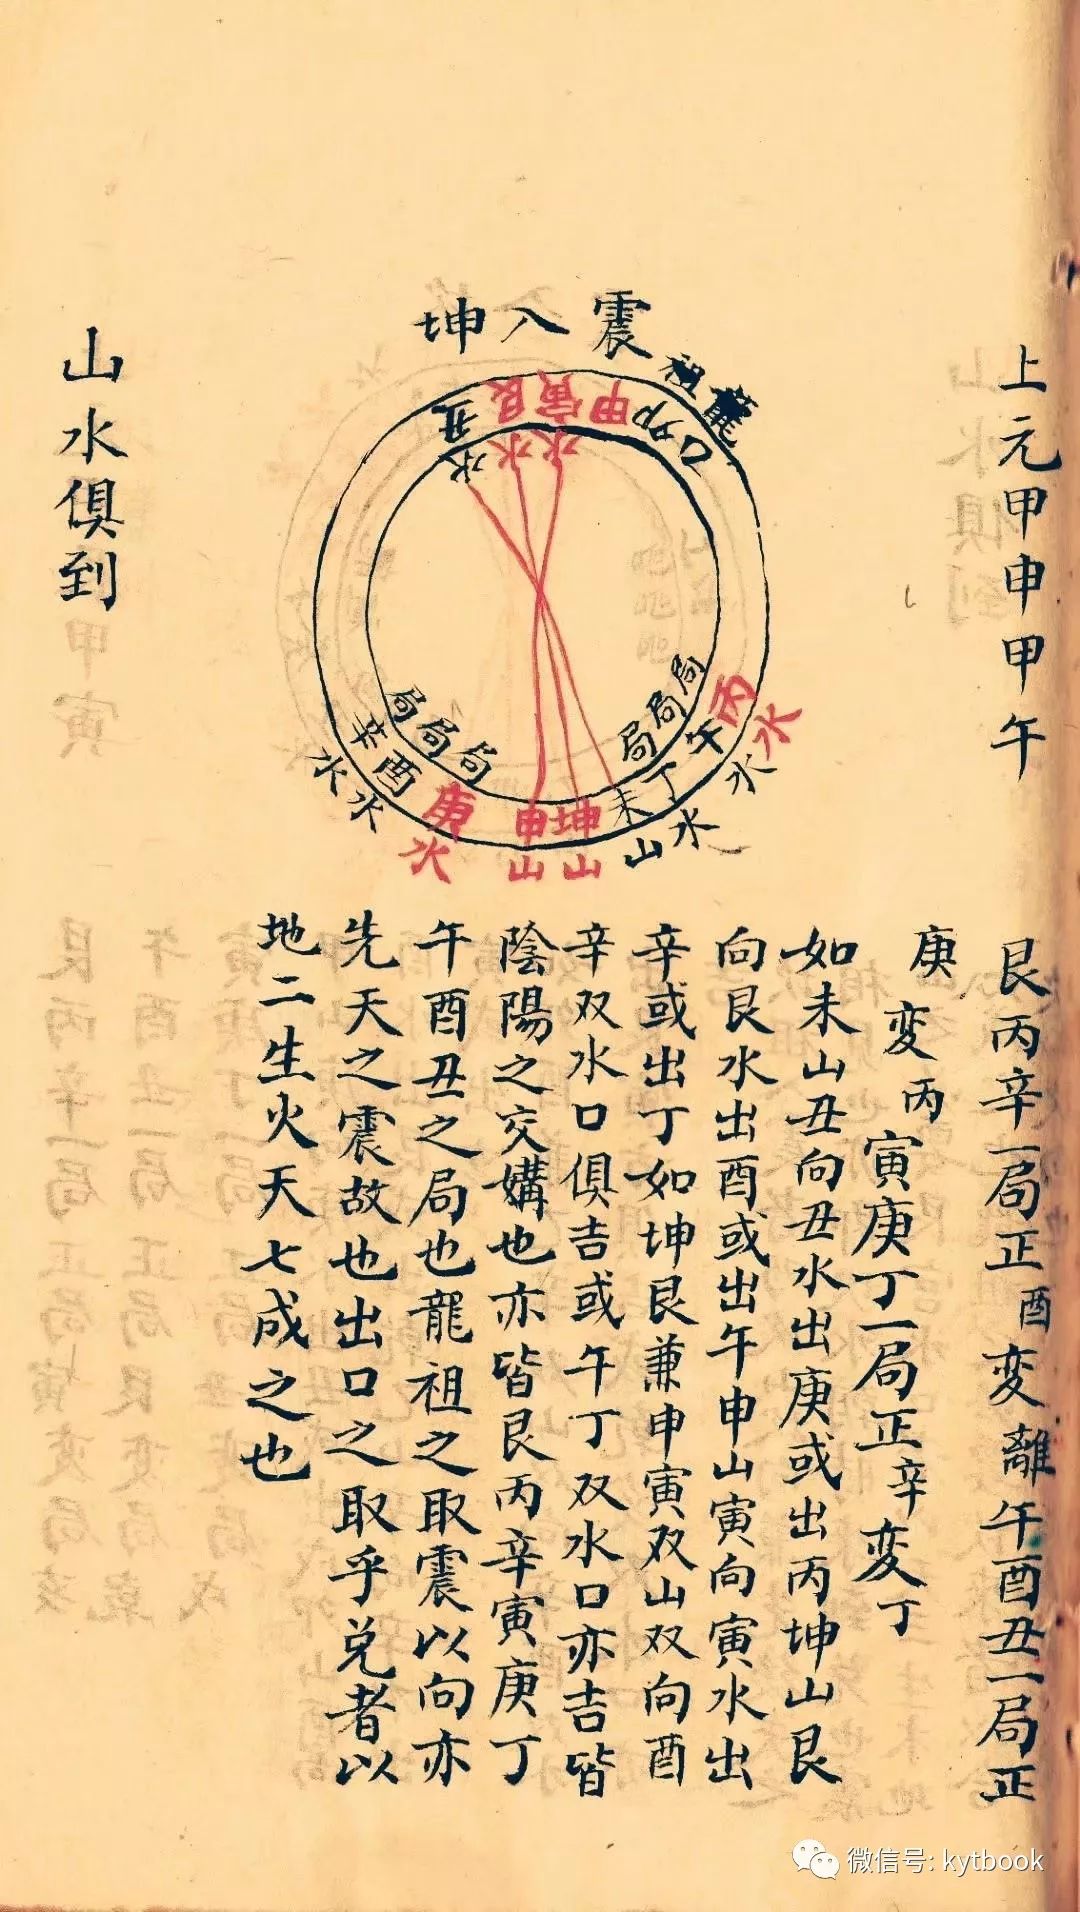 上元甲申甲午
震入坤
龍祖
乙卯甲寅艮丑
水水水水
丙午丁未坤申庚酉辛
水水水山山山水水水
局局局
局局局
山水俱到
艮丙辛一局正酉变離午酉丑一局正
庚变丙寅庚丁一局正辛变丁
如未山丑向丑水出庚或出丙坤山艮
向艮水出酉或出午申山寅向寅水出
辛或出丁如坤艮兼申寅双山双向酉
辛双水口俱吉或午丁双水口亦吉皆
陰陽之交媾也亦皆艮丙辛寅庚丁
午酉丑之局也龍祖之取震以向亦
先天之震故也出口之取乎兑者以
地二生火天七成之也
微信号: kytbook